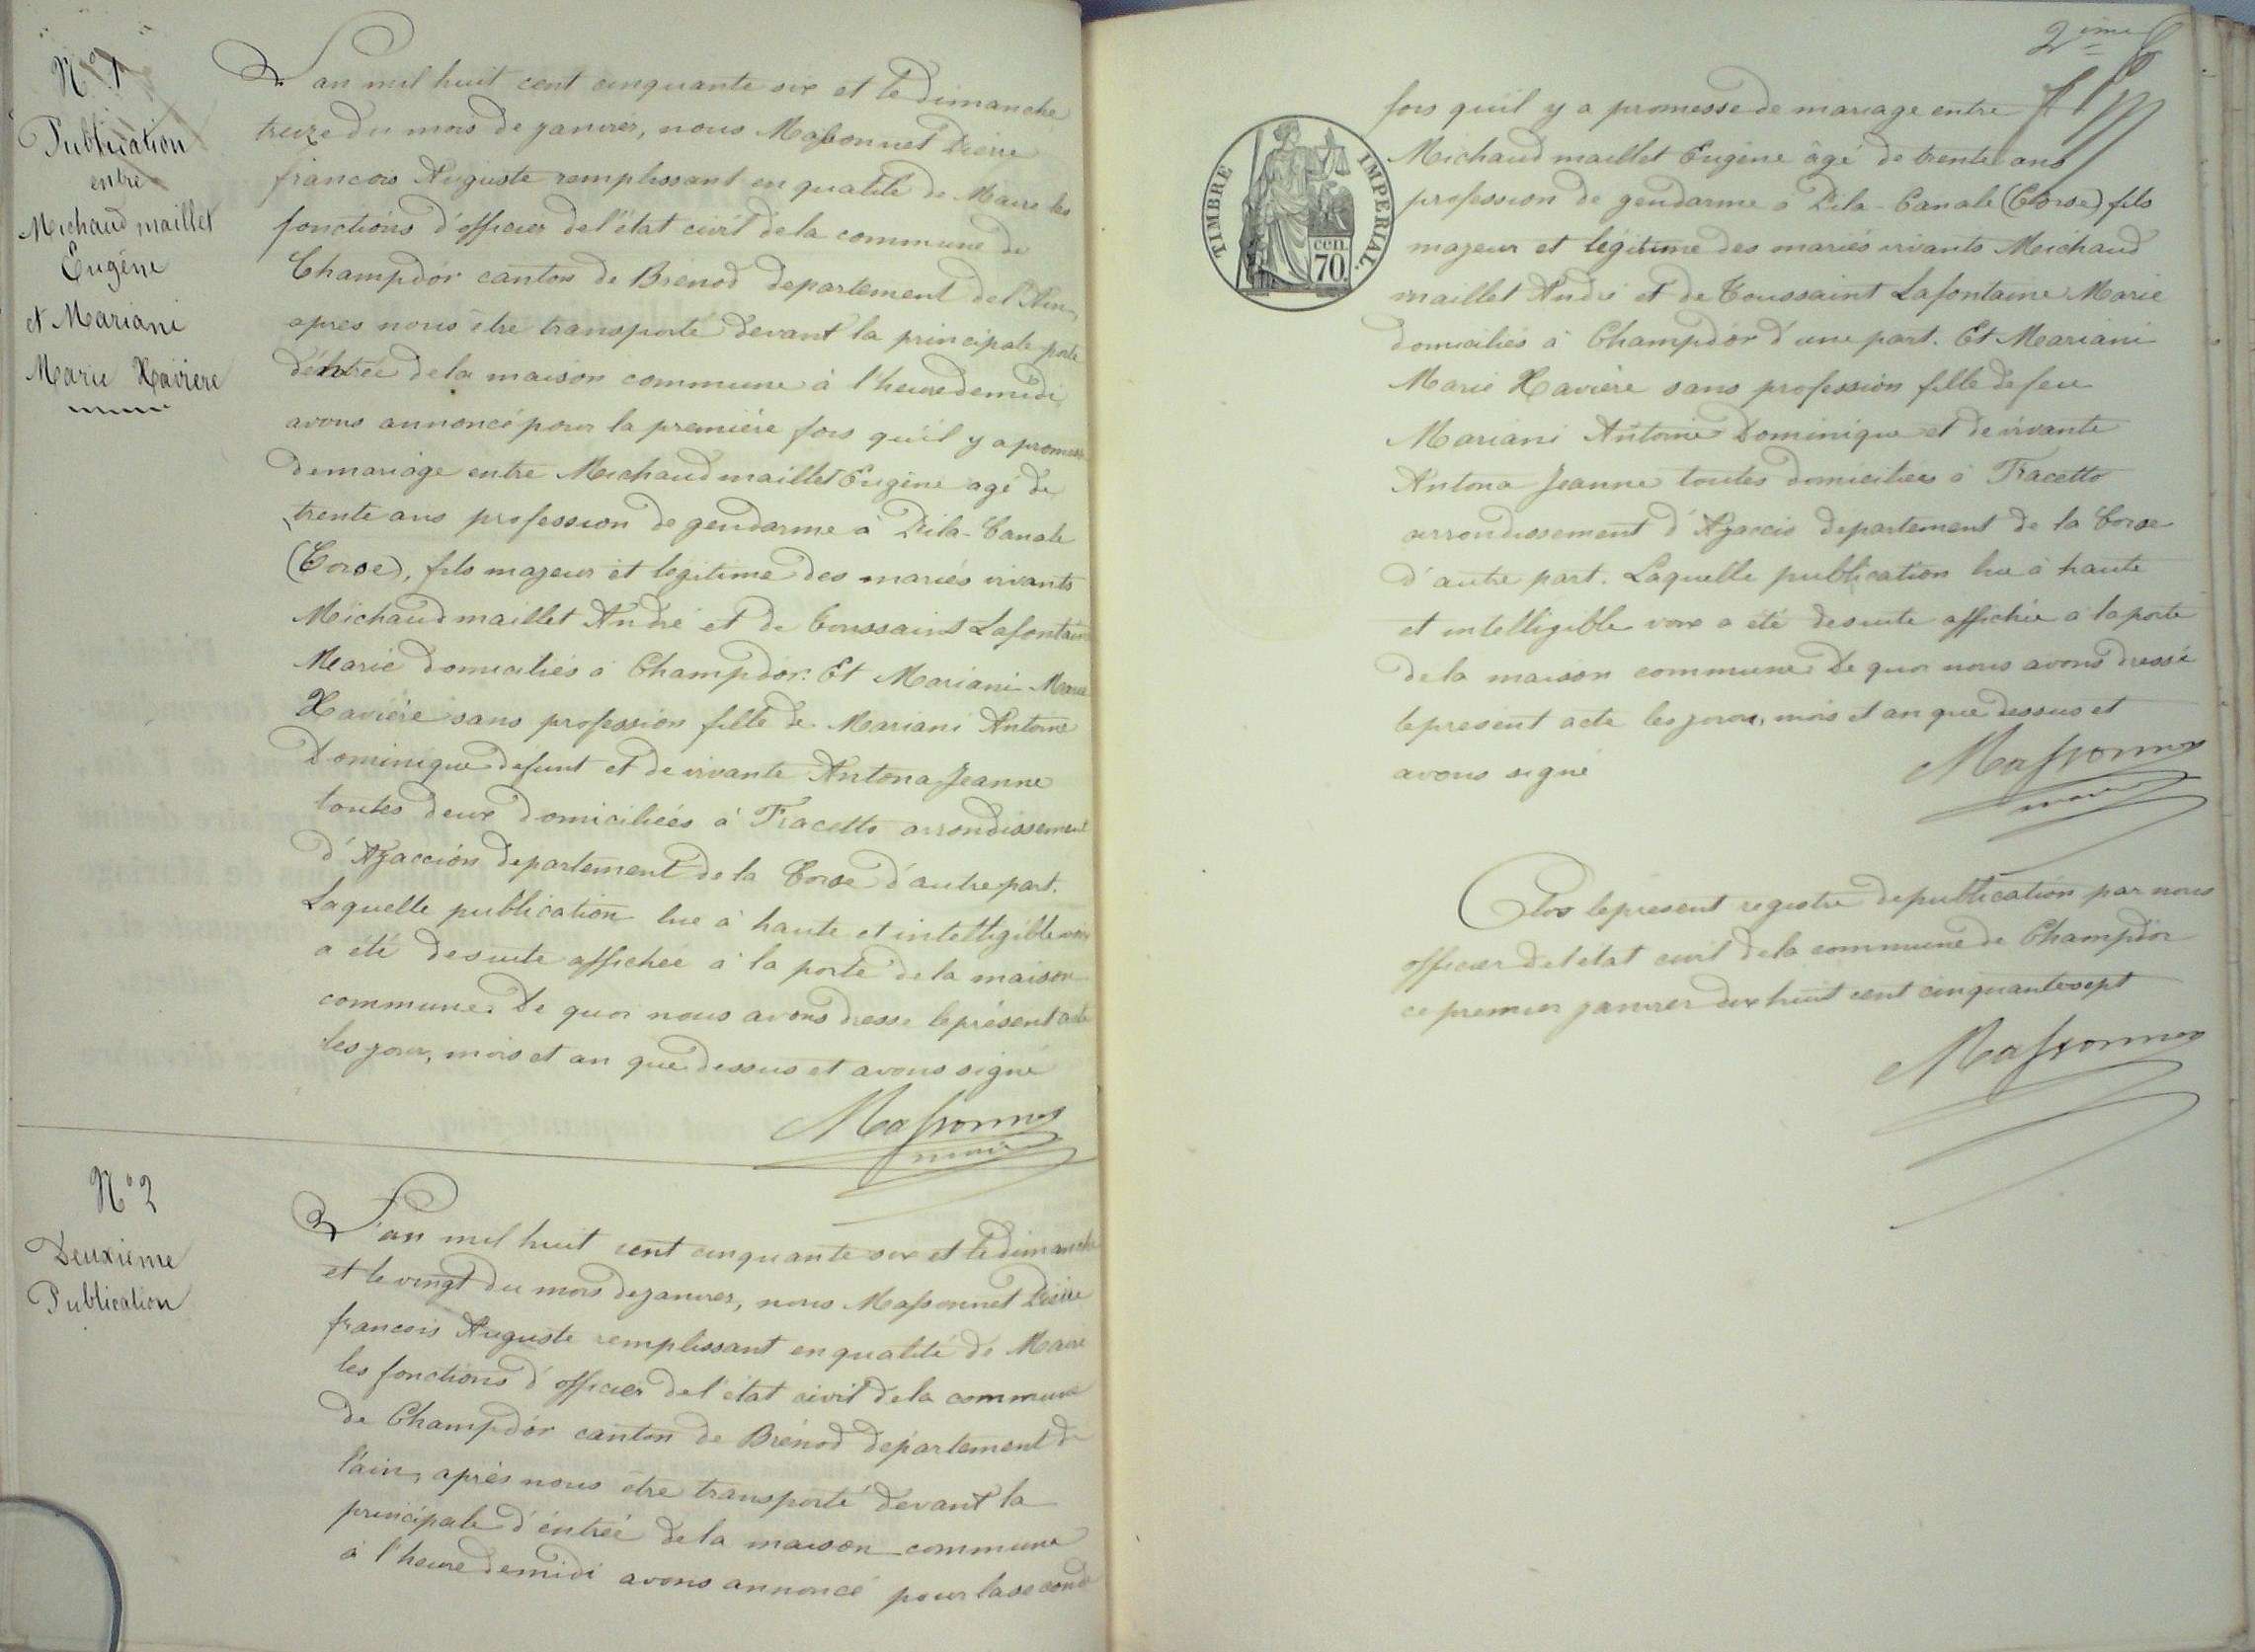 N° 1
Publication
entre
Michaud maillet
Eugène
et Mariani
Marie Xavière
L'an mil huit cent cinquante six et le dimanche
treize du mois de janvier, nous Massonnet Pierre
francois Auguste remplissant en qualité de Maire les
fonctions d'officier de l'état civil de la commune de
Champdor canton de Brénod departement de l'Ain,
apres nous être transporté devant la principale porte
d'entrée de la maison commune à l'heure de midi
avons annoncé pour la première fois qu'il y a promesse
de mariage entre Michaud maillet Eugène agé de
trente ans profession de gendarme à Pila-Canale
(Corse), fils majeur et legitime des mariés vivants
Michaud maillet André et de Toussaint Lafontaine
Marie domiciliés à Champdor. Et Mariani Marie
Xavière sans profession fille de Mariani Antoine
Dominique defunt et de vivante Antona Jeanne
toutes deux domiciliées à Fracetto arrondissement
d'Ajaccion departement de la Corse d'autre part.
Laquelle publication lue à haute et intelligible voix
a été desuite affichée à la porte de la maison
commune. De quoi nous avons dressé le présent acte
les jour, mois et an que dessus et avons signé
Massonnet
maire
N° 2
Deuxième
Publication
L'an mil huit cent cinquante six et le dimanche
et le vingt du mois de janvier, nous Massonnet Pierre
francois Auguste remplissant en qualité de Maire
les fonctions d'officier de l'état civil de la commune
de Champdor canton de Brénod département de
l'ain, après nous être transporté devant la
principale d'entrée de la maison commune
à l'heure de midi avons annoncé pour la seconde
2ième
TIMBRE IMPERIAL.
cen.
70.
fois qu'il y a promesse de mariage entre
Michaud maillet Eugène âgé de trente ans
profession de gendarme à Pila-Canale (Corse) fils
majeur et légitime des mariés vivants Michaud
maillet André et de Toussaint Lafontaine Marie
domiciliés à Champdor d'une part. Et Mariani
Marie Xavière sans profession fille de feu
Mariani Antoine Dominique et de vivante
Antona Jeanne toutes domiciliées à Fracetto
arrondissement d'Ajaccio departement de la Corse
d'autre part. Laquelle publication lue à haute
et intelligible voix a été desuite affichée à la porte
de la maison commune. De quoi nous avons dressé
le présent acte les jour, mois et an que dessus et
avons signé
Massonnet
maire
Clos le présent registre de publication par nous
officier de l'etat civil de la commune de Champdor
ce premier janvier dix huit cent cinquante sept
Massonnet